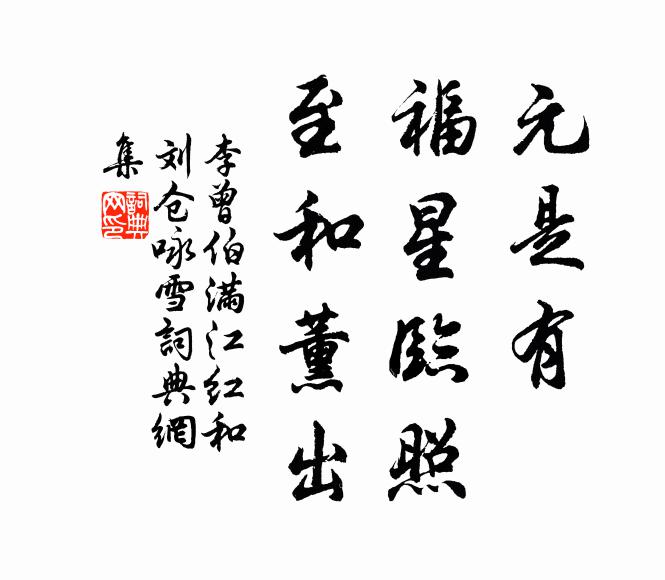 元是有
福星臨照
至和薰出
李曾伯满江红和
刘仓咏雪詞典網
集
詞典
网印